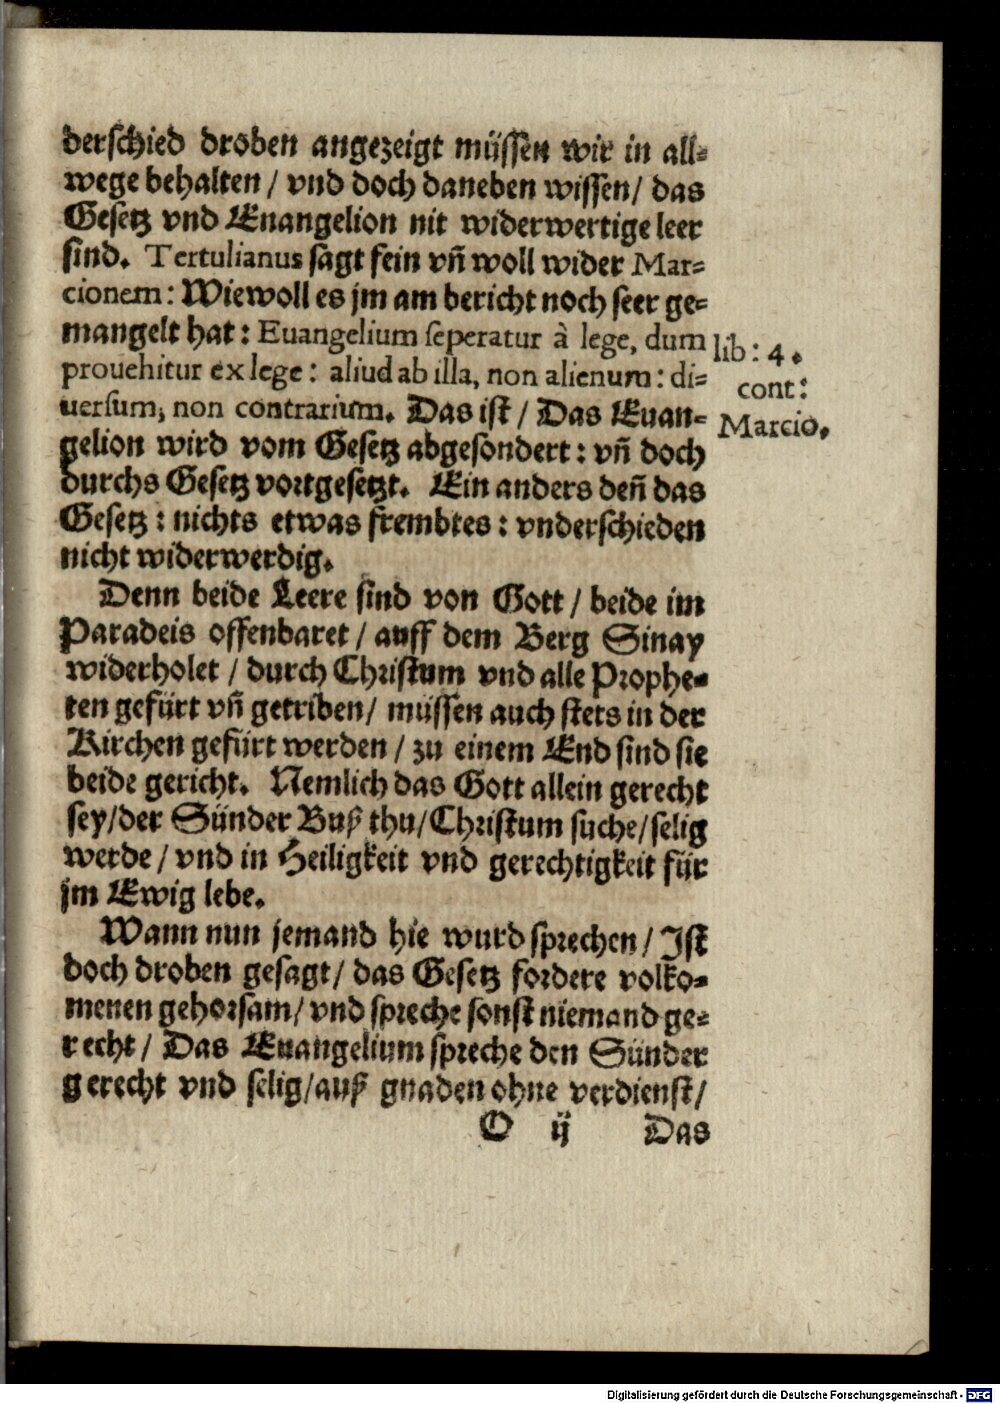 derſchied droben angezeigt müſſen wir in all⸗
wege behalten / vnd doch daneben wiſſen / das
Geſetz vnd Euangelion nit widerwertige leer
ſind. Tertulianus ſagt fein vñ woll wider Mar⸗
cionem: Wiewoll es jm am bericht noch ſeer ge⸗
mangelt hat: Euangelium ſeperatur à lege, dum
prouehitur ex lege: aliud ab illa, non alienum: di⸗
uerſum, non contrarium. Das iſt / Das Euan⸗
gelion wird vom Geſetz abgeſondert: vñ doch
durchs Geſetz vortgeſetzt. Ein anders deñ das
Geſetz: nichts etwas frembtes: vnderſchieden
nicht widerwerdig.
lib: 4.
cont:
Marcio.
Denn beide Leere ſind von Gott / beide im
Paradeis offenbaret / auff dem Berg Sinay
widerholet / durch Chriſtum vnd alle Prophe⸗
ten gefürt vñ getriben / müſſen auch ſtets in der
Kirchen gefürt werden / zu einem End ſind ſie
beide gericht. Nemlich das Gott allein gerecht
ſey / der Sünder Buß thu / Chriſtum ſuche / ſelig
werde / vnd in Heiligkeit vnd gerechtigkeit für
jm Ewig lebe.
Wann nun jemand hie wurd ſprechen / Iſt
doch droben geſagt / das Geſetz fordere volko⸗
menen gehorſam / vnd ſpreche ſonſt niemand ge⸗
recht / Das Euangelium ſpreche den Sünder
gerecht vnd ſelig / auß gnaden ohne verdienſt /
O ij Das
Digitalisierung gefördert durch die Deutsche Forschungsgemeinschaft - DFG